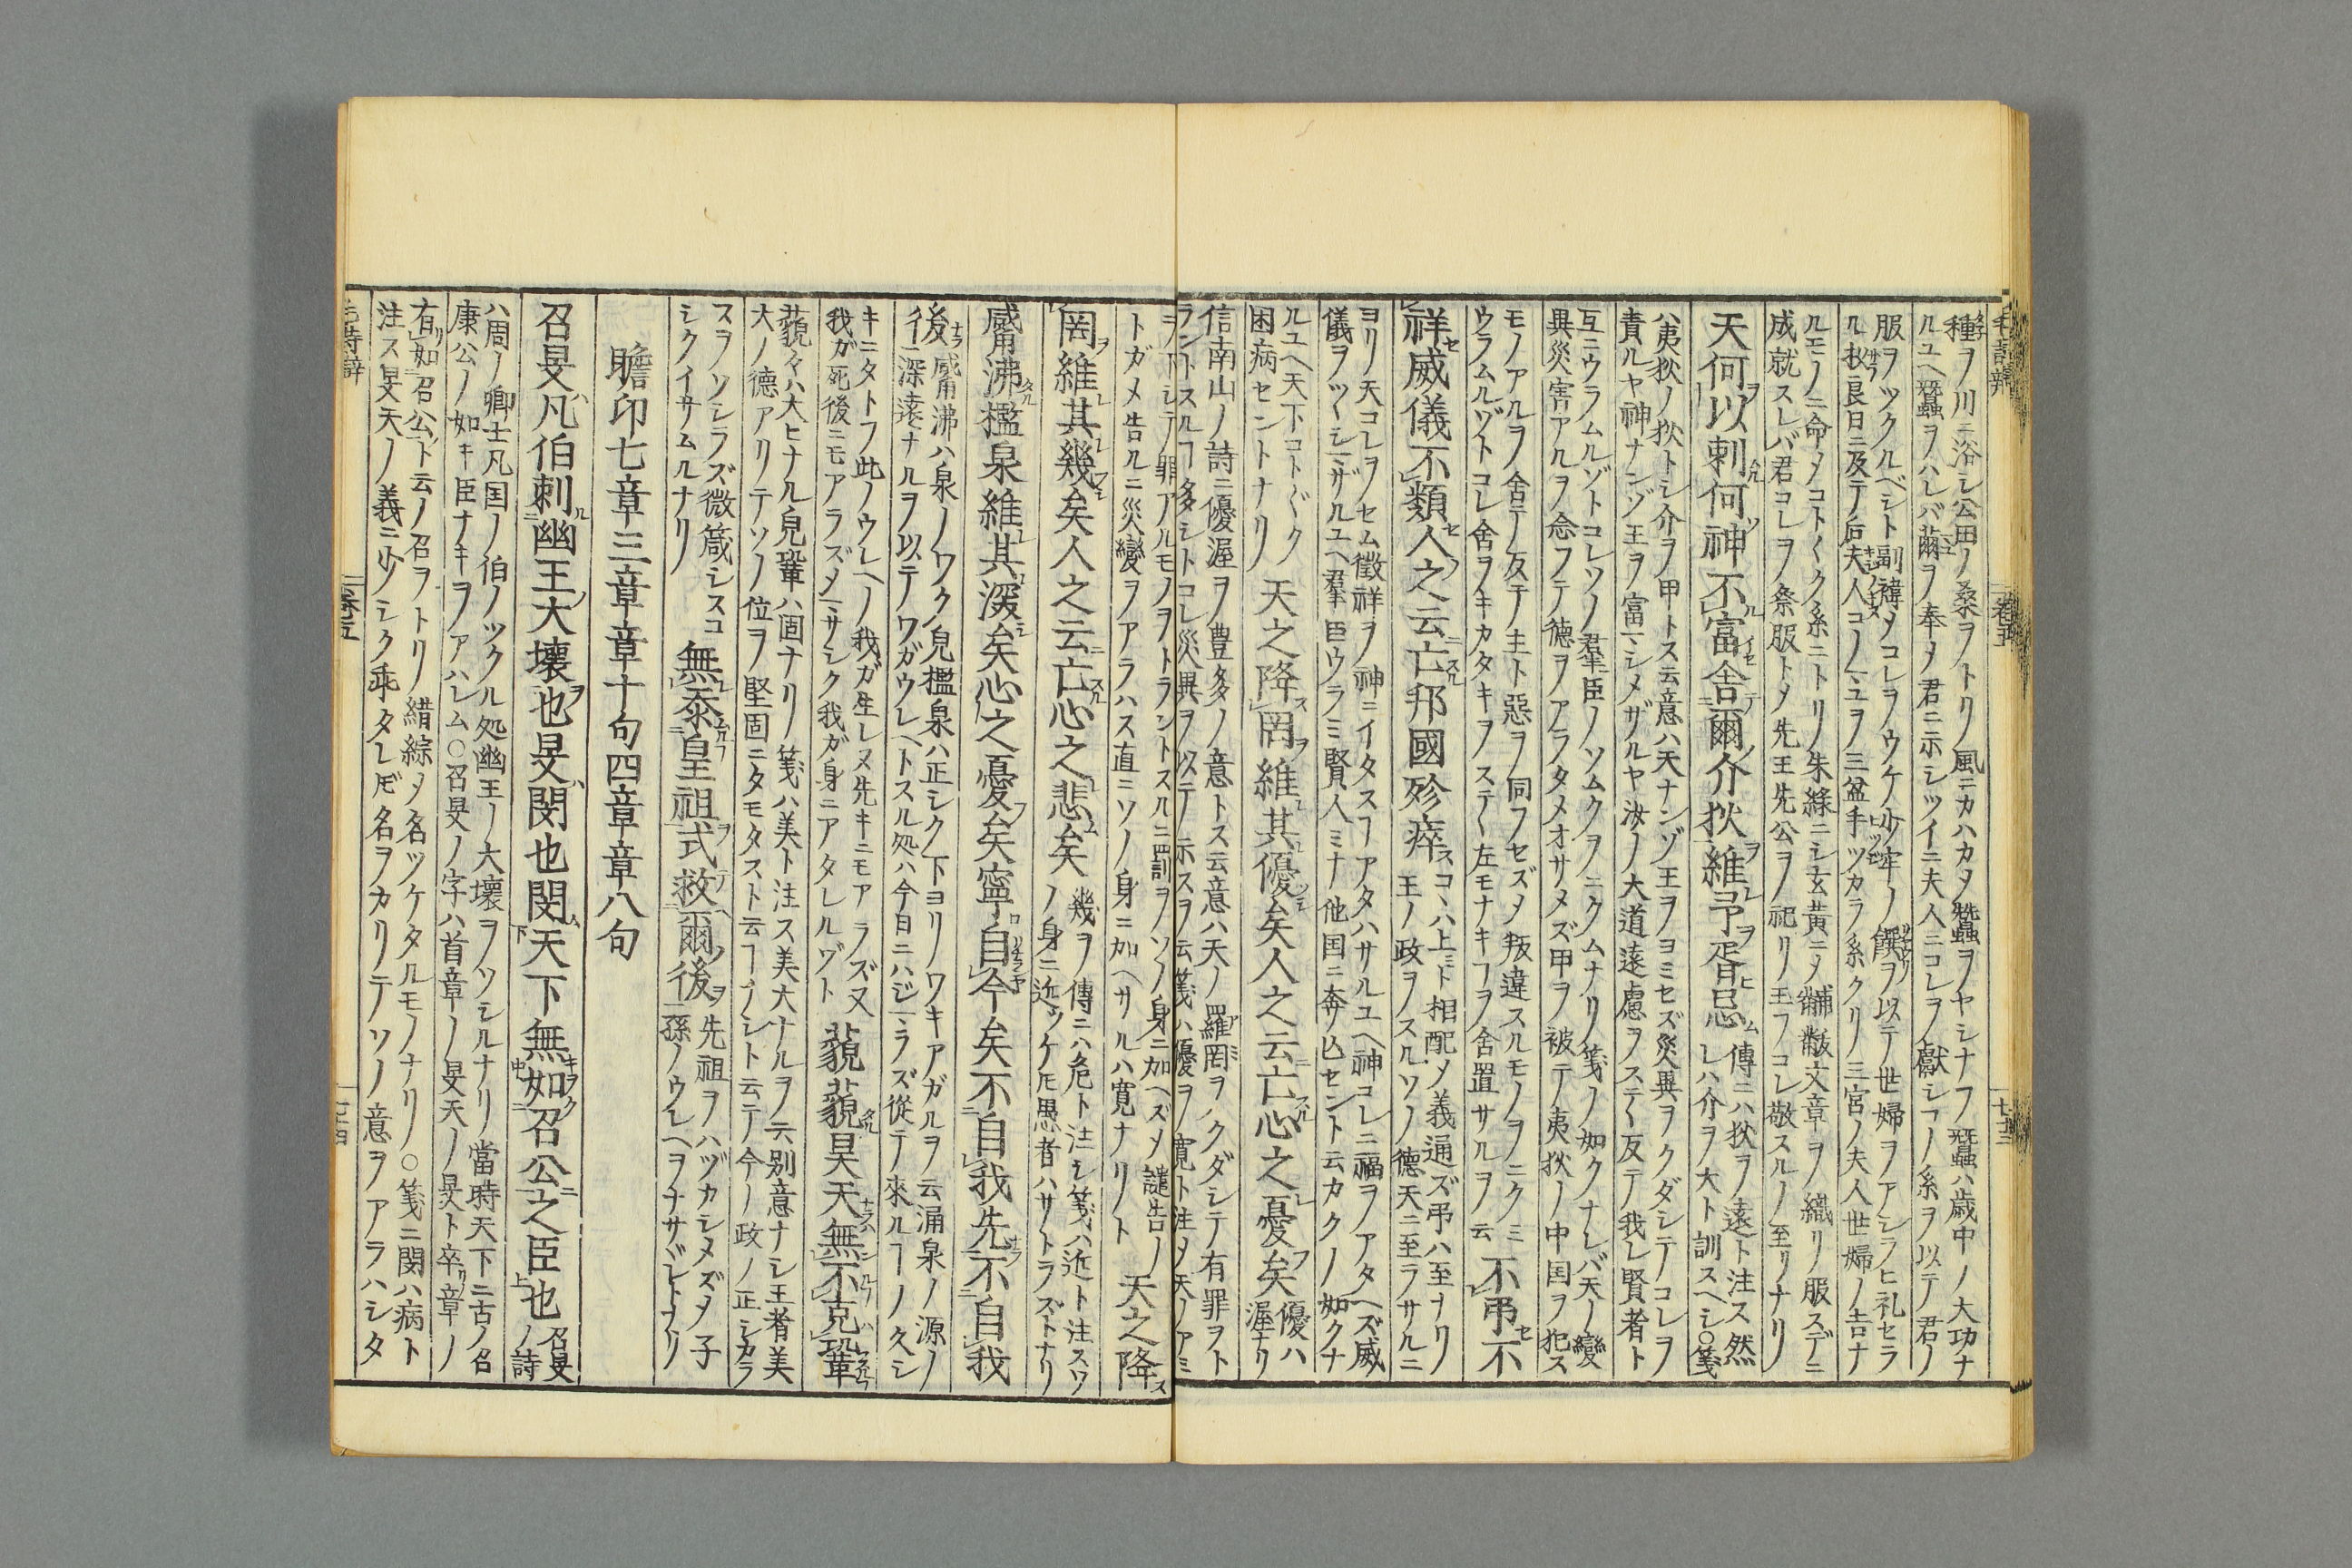 種ヲ川ニ浴シ公田ノ桑ヲトリ風ニカハカメ蠶ヲヤシナフ蠶ハ歳中ノ大功ナ
ルユヘ蠶ヲハレバ繭ヲ奉メ君ニホシツイニ夫人ニコレヲ獻シコノ糸ヲ以テ君ノ
服ヲツクルベシト副褘メコレヲウケ少牢ノ饌ヲ以テ世婦ヲアシラヒ礼セラ
ル扨良日ニ及テ后夫人コノユヲ三盆手ツカラ糸クリ三宮ノ夫人世婦ノ吉ナ
ルモノニ命メコト〱ク糸ニトリ朱綠ニシ玄黄ニメ黼黻文章ヲノ織リ服スデニ
成就スレバ君コレヲノ祭服トメ先王先公ヲノ祀リ玉フコレ敬スルノ至リナリ
天何以刺何神不富舍爾介狄維予胥忌
傳ニハ狄ヲ遠ト注ス然
レハ介ヲ大ト訓スヘシ○箋
ハ夷狄ノ狄トシ介ヲノ甲トス云意ハ天ナンゾ王ヲノヨミセズ災異ヲクダシテコレヲ
責ルヤ神ナンゾ王ヲノ富マシメザルヤ汝ノ大道遠慮ヲノステ〱反テ我レ賢者ト
互ニウラムルゾトコレソノ羣臣ノソムクヲノニクムナリ箋ノ如クナレバ天ノ變
異災害アルヲノ念フテ德ヲノアラタメオサメズ甲ヲノ被テ夷狄ノ中国ヲノ犯ス
モノアルヲノ舍テノ反テノ主ト惡ヲノ同フセズメノ叛違スルモノヲノニクミ
ウラムルゾトコレ舍ヲノキカタキヲノステ〱左モナキフヲノ舍置サルヲノ云
不弔不
祥威儀不類人之云亡邦國殄瘁
スコヽハ上ミト相配メ義通ズ弔ハ至ナリ
王ノ政ヲノスルソノ德天ニ至ラサルニ
ヨリ天コレヲノセム徵祥ヲノ神ニイタスフアタハサルユヘ神コレニ福ヲノアタヘズ威
儀ヲノツヽシマザルユヘ羣臣ウラミ賢人ミナ他国ニ奔ノ亾セント云カクノ如クナ
ルユヘ天下コト〲ク
困病セントナリ
天之降罔維其優矣人之云亡心之憂矣
優ハ
渥ナリ
信南山ノ詩ニ優渥ヲノ豊多ノ意トス云意ハ天ノ羅罔ヲノクダシテ有罪ヲト
ラントスルフ多シトコレ災異ヲノ以テノ示スヲノ云箋ハ優ヲノ寛ト注メ天ノアミ
ヲノ下シテノ罪アルモノヲノトラントスルニ罰ヲノソノ身ニ加ヘズメノ譴告ノ
トガメ告ルニ災變ヲノアラハス直ニソノ身ニ加ヘサルハ寛ナリノト
天之降
罔維其幾矣人之云亡心之悲矣
幾ヲノ傳ニハ危ト注シ箋ハ近ト注スワ
ノ身ニ近ヅケ𪜈愚者ハサトラズトナリ
觱沸檻泉維其深矣心之憂矣寧自今矣不自我先不自我
後
觱沸ハ泉ノワク皃檻泉ハ正シク下ヨリノワキアガルヲノ云涌泉ノ源ノ
深遠ナルヲノ以テノワガウレヘトスル処ハ今日ニハジマラズ從テノ來ルフノ久シ
キニタトフ此ノウレヘノ我ガ生レヌ先キニモアラズ又
我ガ死後ニモアラズメマサシク我ガ身ニアタレルゾト
藐藐昊天無不克鞏
藐々ハ大ヒナル皃鞏ハ固ナリノ箋ハ美ト注ス美大ナルヲノ云別意ナシ王者美
大ノ德アリテソノ位ヲノ堅固ニタモタスト云フナシト云テノ今ノ政ノ正シカラ
スヲノソシラズ微箴シスコ
シクイサムルナリ
無忝皇祖式救爾後
先祖ヲノハヅカシメズメ子
孫ノウレヘヲノナサヾレトナリ
瞻卬七章三章章十句四章章八句
召旻凡伯刺幽王大壞也旻閔也閔天下無如召公之臣也
召旻
ノ詩
ハ周ノ卿士凡国ノ伯ノツクル処幽王ノ大壞ヲノソシルナリノ當時天下ニ古ノ召
康公ノ如キ臣ナキヲノアハレム○召旻ノ字ハ首章ノ旻天ノ旻ト卒章ノ
有如召公ト云ノ召ヲノトリノ錯綜メ名ヅケタルモノナリノ○箋ニ閔ハ病ト
注ス旻天ノ義ニ少シク乖タレ𪜈名ヲノカリテソノ意ヲノアラハシタ
毛詩辯
卷五